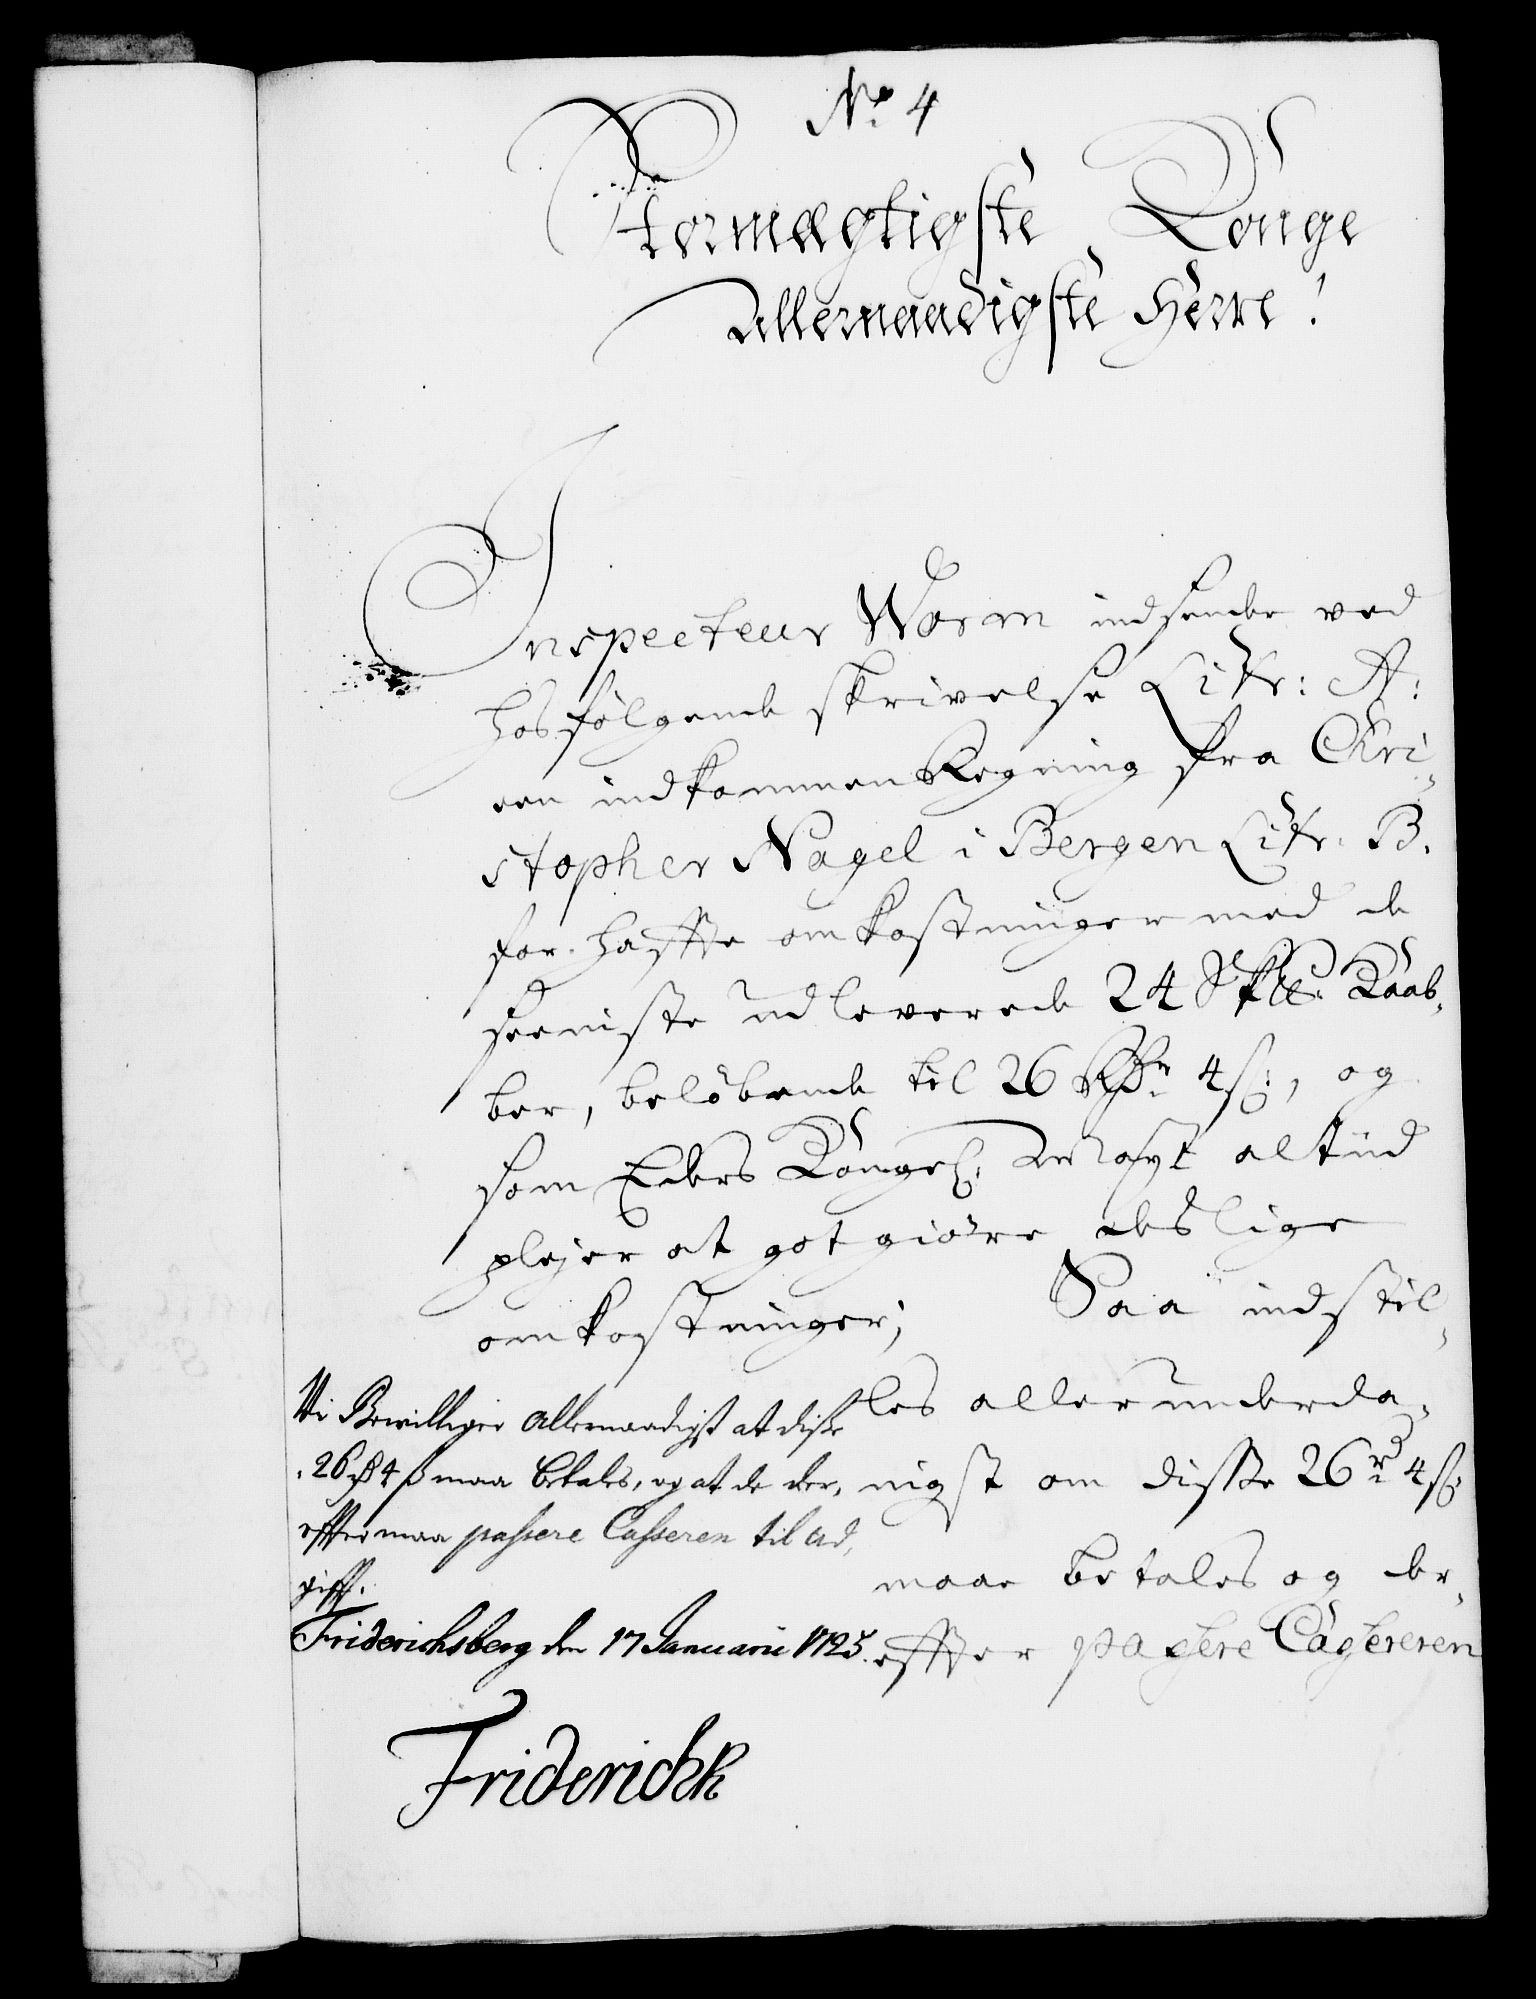 No. 4
Stormægtigste Konge
Allernaadigste Herre!
Inspecteur Worm indsender ved
hosfølgende skrivelse Litr: A:
een indkommen Regning fra Chri-
stopher Nagel i Bergen Litr. B.
for hafte omkostninger med de
seeniste udleverede 24 Sk℔: Kaab-
ber, beløbende til 26 Rdr 4 ß:, og
som Eders Kongel: Mayt altiid
plejer at got giöre deslige
omkostninger; Saa indstil-
les allerunderda-
nigst om disse 26 rd 4 ß:
maae betales og der-
effter passere Casseren
Vi Bewilliger Allernaadigst at disse
26 rd 4 ß maa betales, og at de der-
effter maa passere Casseren til ud-
gifft.
Friderichsberg den 17 Januarii 1725.
Friderich R